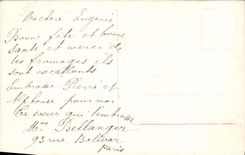 Ma chère Eugénie
Bonne fête et bonne
Santé et merci de
tes fromages ils
sont excellents
Embrasse Pierre et
Alphonse pour moi
Ta sœur qui t'embrasse
Mme Bellanger
93 rue Bolivar
Paris